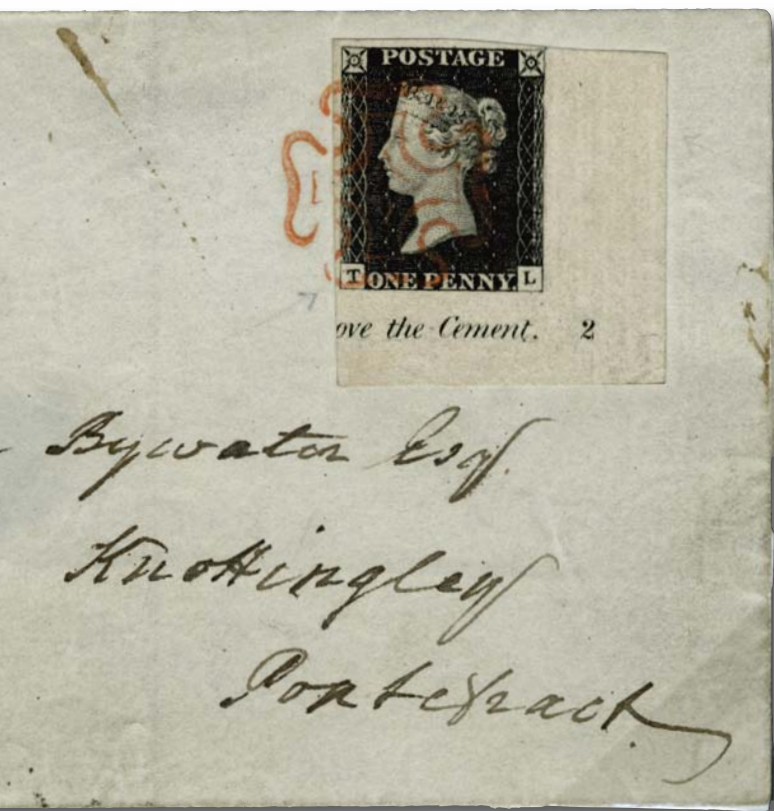 POSTAGE
T ONE PENNY L
ove the Cement. 2
Bywater Esqr
Knottingley
Pontefract